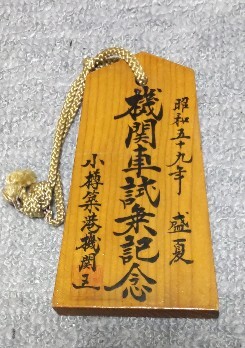 昭和五十九年 盛夏
機関車試乗記念
小樽築港機関区